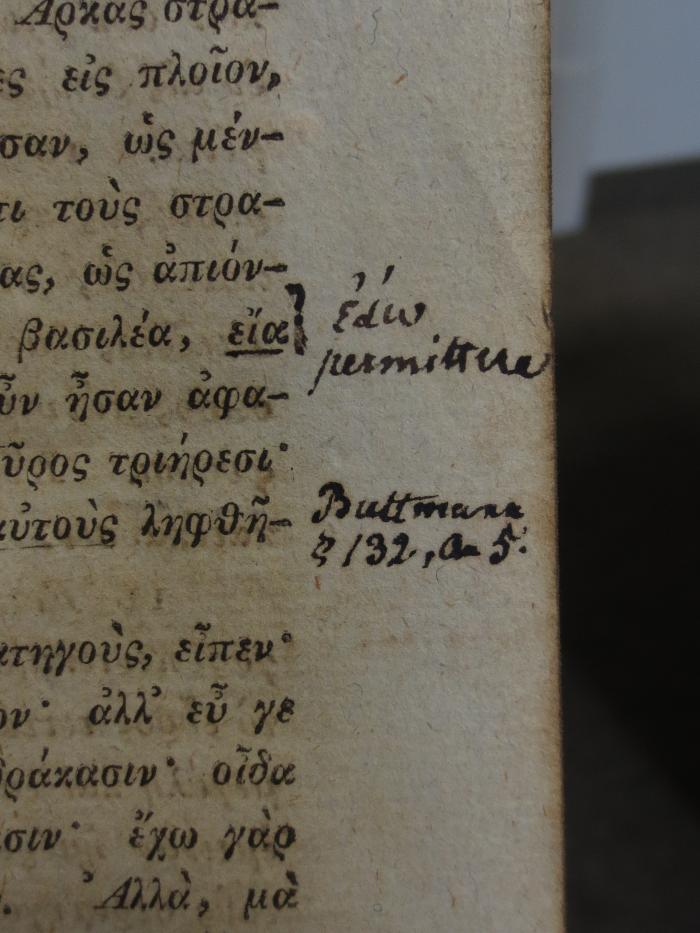 Ἀρκὰς στρα-
ες εἰς πλοῖον,
σαν, ὡς μέν-
τι τοὺς στρα-
ας, ὡς ἀπιόν-
βασιλέα, εἴα
ἐάω
permittere
ὖν ἦσαν ἀφα-
ῦρος τριήρεσι·
αὐτοὺς ληφθῆ-
Buttmann
§ 132, a 5.
ατηγοὺς, εἶπεν·
ον· ἀλλ' εὖ γε
δράκασιν· οἶδα
σιν· ἔχω γὰρ
Ἀλλὰ, μὰ